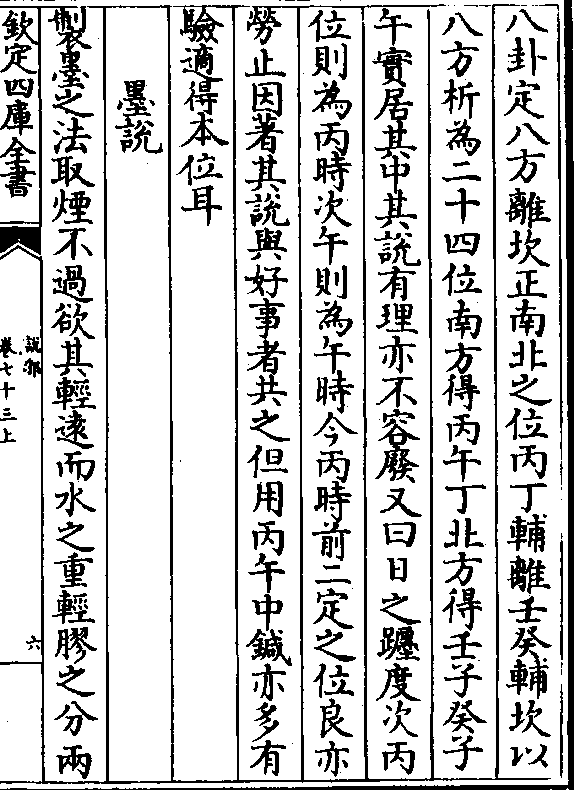 八卦定八方離坎正南北之位丙丁輔離壬癸輔坎以
八方析為二十四位南方得丙午丁北方得壬子癸子
午實居其中其説有理亦不容廢又曰日之躔度次丙
位則為丙時次午則為午時今丙時前二定之位良亦
勞止因著其説與好事者共之但用丙午中鍼亦多有
驗適得本位耳
墨説
製墨之法取煙不過欲其輕逺而水之重輕膠之分兩
欽定四庫全書
説郛
卷七十三上
六